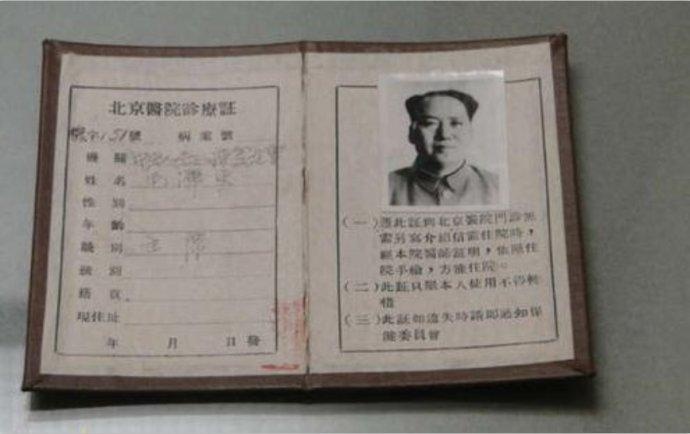 北京醫院診療証
號 病案號
機關
姓名 毛澤東
性別
年齡
職別 主席
級別
籍貫
現住址
年 月 日發
(一)憑此証到北京醫院門診無
需另寫介紹信需住院時,
經本院醫師証明,依照住
院手續,方能住院。
(二)此証只限本人使用不得轉
借
(三)此証如遺失時請即通知保
健委員會